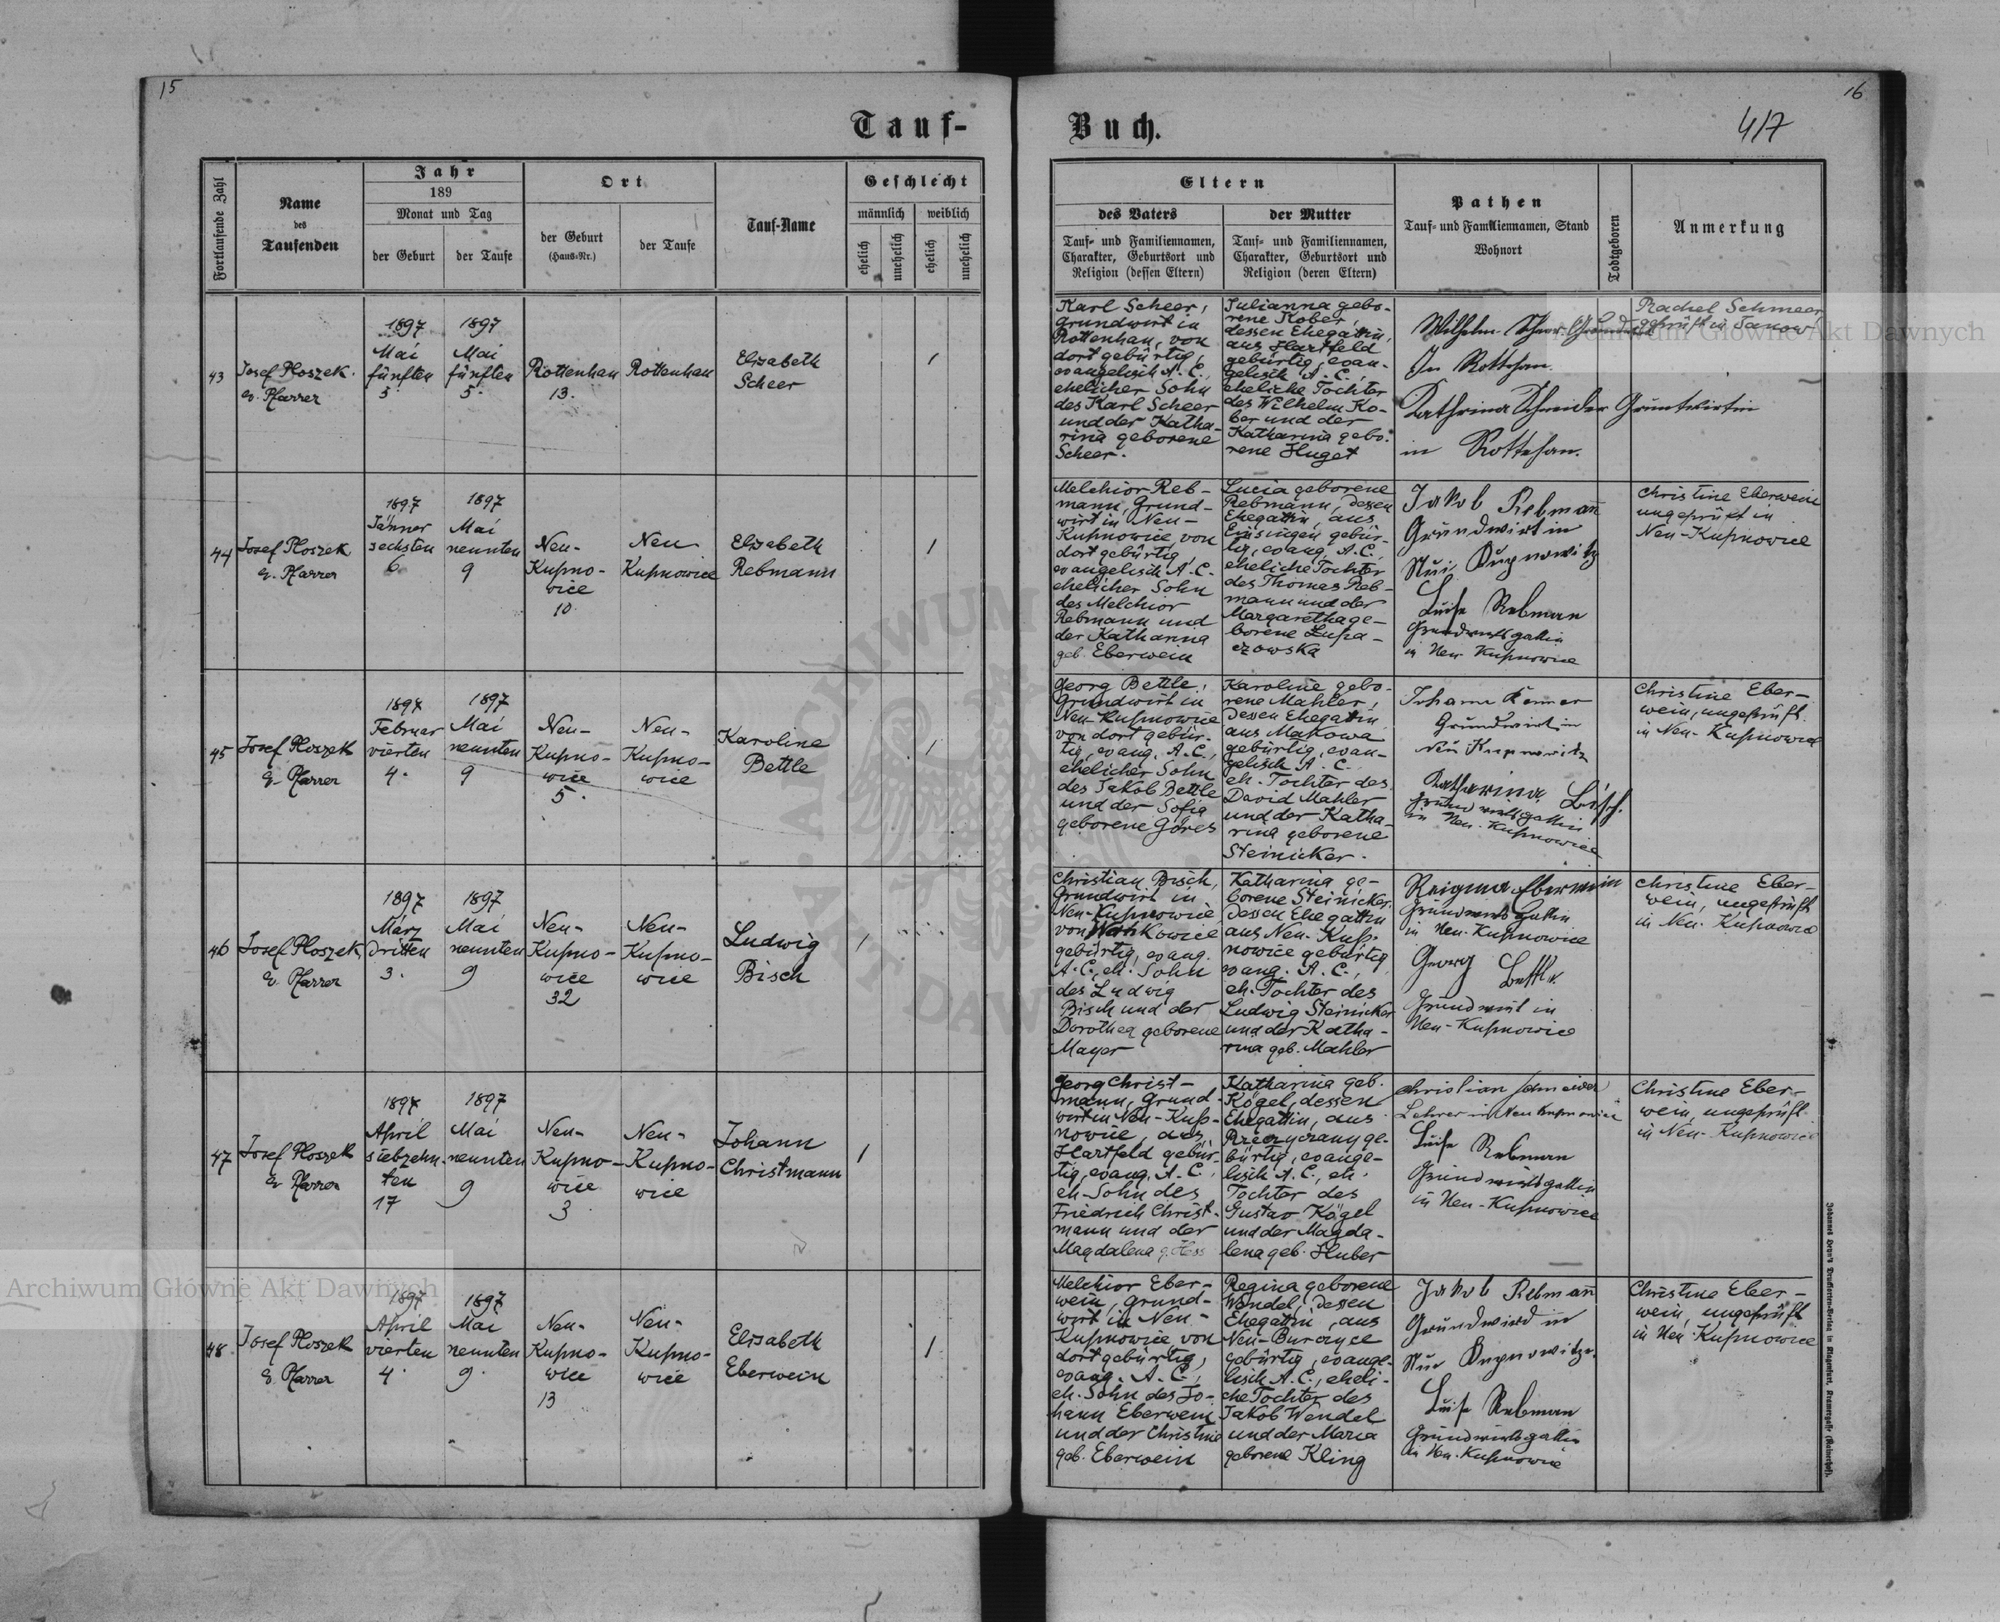 15
16
Tauf-
Buch.
417
Fortlaufende Zahl
Name
des
Taufenden
Jahr
189
Monat und Tag
der Geburt
der Taufe
Ort
der Geburt
(Haus-Nr.)
der Taufe
Tauf-Name
Geschlecht
männlich
weiblich
ehelich
unehelich
ehelich
unehelich
Eltern
des Vaters
Tauf- und Familiennamen,
Charakter, Geburtsort und
Religion (dessen Eltern)
der Mutter
Tauf- und Familiennamen,
Charakter, Geburtsort und
Religion (deren Eltern)
Pathen
Tauf- und Familiennamen, Stand
Wohnort
Todtgeboren
Anmerkung
43
Josef Ploszek
ev. Pfarrer
1897
Mai
fünften
5
1897
Mai
fünften
5.
Rottenhan
13.
Rottenhan
Elisabeth
Scheer
1
Karl Scheer,
Grundwirt in
Rottenhan, von
dort gebürtig,
evangelisch A. C.,
ehelicher Sohn
des Karl Scheer
und der Katha-
rina geborene
Scheer.
Julianna gebo-
rene Kober,
dessen Ehegattin,
aus Hartfeld
gebürtig, evan-
gelisch A. C.
eheliche Tochter
des Wilhelm Ko-
ber und der
Katharina gebo-
rene Huget
Wilhelm Scheer
In Rottehan.
Kathrina Schneider Gruntwirtin
in Rottehan.
Rachel Schmeer
geprüft in Janow
44
Josef Ploszek
ev. Pfarrer
1897
Jänner
sechsten
6
1897
Mai
neunten
9
Neu-
Kupno-
wice
10
Neu
Kupnowice
Elisabeth
Rebmann
1
Melchior Reb-
mann, Grund-
wirt in Neu-
Kupnowice von
dort gebürtig,
evangelisch A. C.
ehelicher Sohn
des Melchior
Rebmann und
der Katharina
geb. Eberwein
Lucia geborene
Rebmann, dessen
Ehegattin, aus
Einsingen gebür-
tig, evang. A. C.,
eheliche Tochter
des Thomas Reb-
mann und der
Margaretha ge-
borene Lupa-
czowska
Jakob Rebmañ
Grundwirt in
Nui Kupnowitz
Luise Rebman
Grundwirtsgattin
in Neu Kupnowice
Christine Eberwein
ungeprüft in
Neu-Kupnowice
45
Josef Ploszek
ev. Pfarrer
1897
Februar
vierten
4.
1897
Mai
neunten
9
Neu-
Kupno-
wice
5.
Neu-
Kupno-
wice
Karoline
Bettle
1
Georg Bettle,
Grundwirt in
Neu-Kupnowice
von dort gebür-
tig, evang. A. C.,
ehelicher Sohn
des Jakob Bettle
und der Sofia
geborene Göres
Karoline gebo-
rene Mahler,
dessen Ehegattin
aus Makowa
gebürtig, evan-
gelisch A. C.
eh. Tochter des
David Mahler
und der Katha-
rina geborene
Steinicker.
Johann
Grundwirt in
Neu Kupnowitz
Katharina Bisch.
Grundwirtsgattin
in Neu-Kupnowice
Christine Eber-
wein, ungeprüft
in Neu-Kupnowice
46
Josef Ploszek
ev. Pfarrer
1897
März
dritten
3.
1897
Mai
neunten
9
Neu-
Kupno-
wice
32
Neu-
Kupno-
wice
Ludwig
Bisch
1
Christian Bisch,
Grundwirt in
Neu-Kupnowice
von
gebürtig, evang.
A. C., eh. Sohn
des Ludwig
Bisch und der
Dorothea geborene
Mayer
Katharina ge-
borene Steinicker,
dessen Ehegattin
aus Neu-Kup-
nowice gebürtig,
evang. A. C.,
eh. Tochter des
Ludwig Steinicker
und der Katha-
rina geb. Mahler
Reigina Eberwein
Grundwirtsgattin
in Neu-Kupnowice
Georg Bettle
Grundwirt in
Neu-Kupnowice
Christine Eber-
wein, ungeprüft
in Neu-Kupnowice
47
Josef Ploszek
ev. Pfarrer
1897
April
siebzehn-
ten
17
1897
Mai
neunten
9
Neu-
Kupno-
wice
3.
Neu-
Kupno-
wice
Johann
Christmann
1
Georg Christ-
mann, Grund-
wirt in Neu-Kup-
nowice, aus
Hartfeld gebür-
tig, evang. A. C.,
eh. Sohn des
Friedrich Christ-
mann und der
Magdalena g. Hess
Katharina geb.
Kögel, dessen
Ehegattin, aus
ge-
bürtig, evange-
lisch A. C., eh.
Tochter des
Gustav Kögel
und der Magda-
lena geb. Huber
Christian Schneider
Lehrer in Neu Kupnowice
Luise Rebman
Grundwirtsgattin
in Neu-Kupnowice
Christine Eber-
wein, ungeprüft
in Neu-Kupnowice
48
Josef Ploszek
ev. Pfarrer
1897
April
vierten
4.
1897
Mai
neunten
9.
Neu-
Kupno-
wice
13
Neu-
Kupno-
wice
Elisabeth
Eberwein
1
Melchior Eber-
wein, Grund-
wirt in Neu-
Kupnowice von
dort gebürtig,
evang. A. C.,
eh. Sohn des Jo-
hann Eberwein
und der Christine
geb. Eberwein
Regina geborene
Wendel, dessen
Ehegattin, aus
Neu-Burczyce
gebürtig, evange-
lisch A. C., eheli-
che Tochter des
Jakob Wendel
und der Maria
geborene Kling
Jakob Rebmañ
Grundwird in
Nui Kupnowitz.
Luise Rebman
Grundwirtsgattin
in Neu-Kupnowice
Christine Eber-
wein, ungeprüft
in Neu Kupnowice
Archiwum Główne Akt Dawnych
Archiwum Główne Akt Dawnych